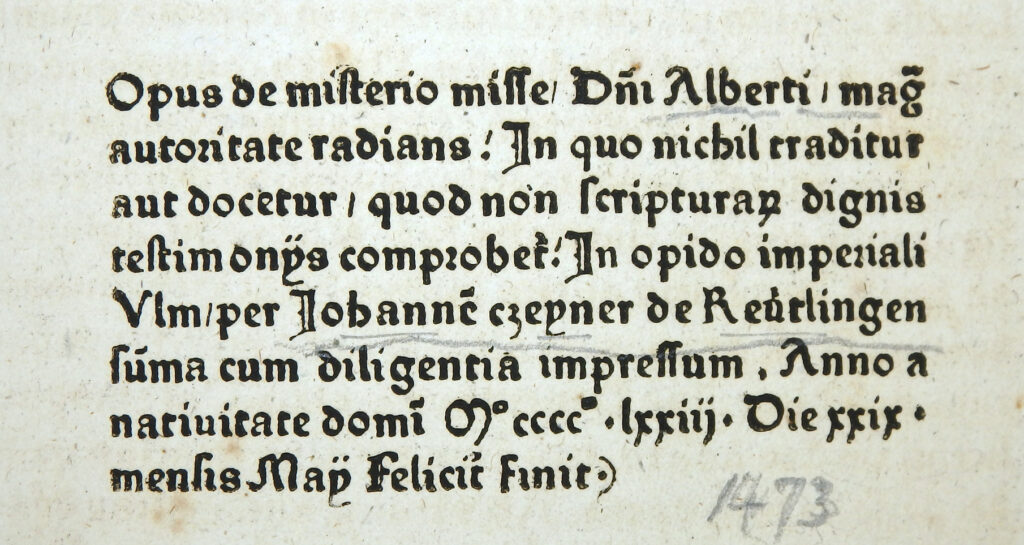 Opus de misterio misse/ Dñi Alberti / mag̃
autoritate radians / In quo nichil traditur
aut docetur / quod non scripturaꝝ dignis
testimonÿs comprobet᷑ / In opido imperiali
Vlm/per Johannē czeyner de Reútlingen
sūma cum diligentia impressum . Anno a
natiuitate domī Mº ccccº · lxxiij · Die xxix ·
mensis Maÿ Felicit᷑ finit ·)
1473